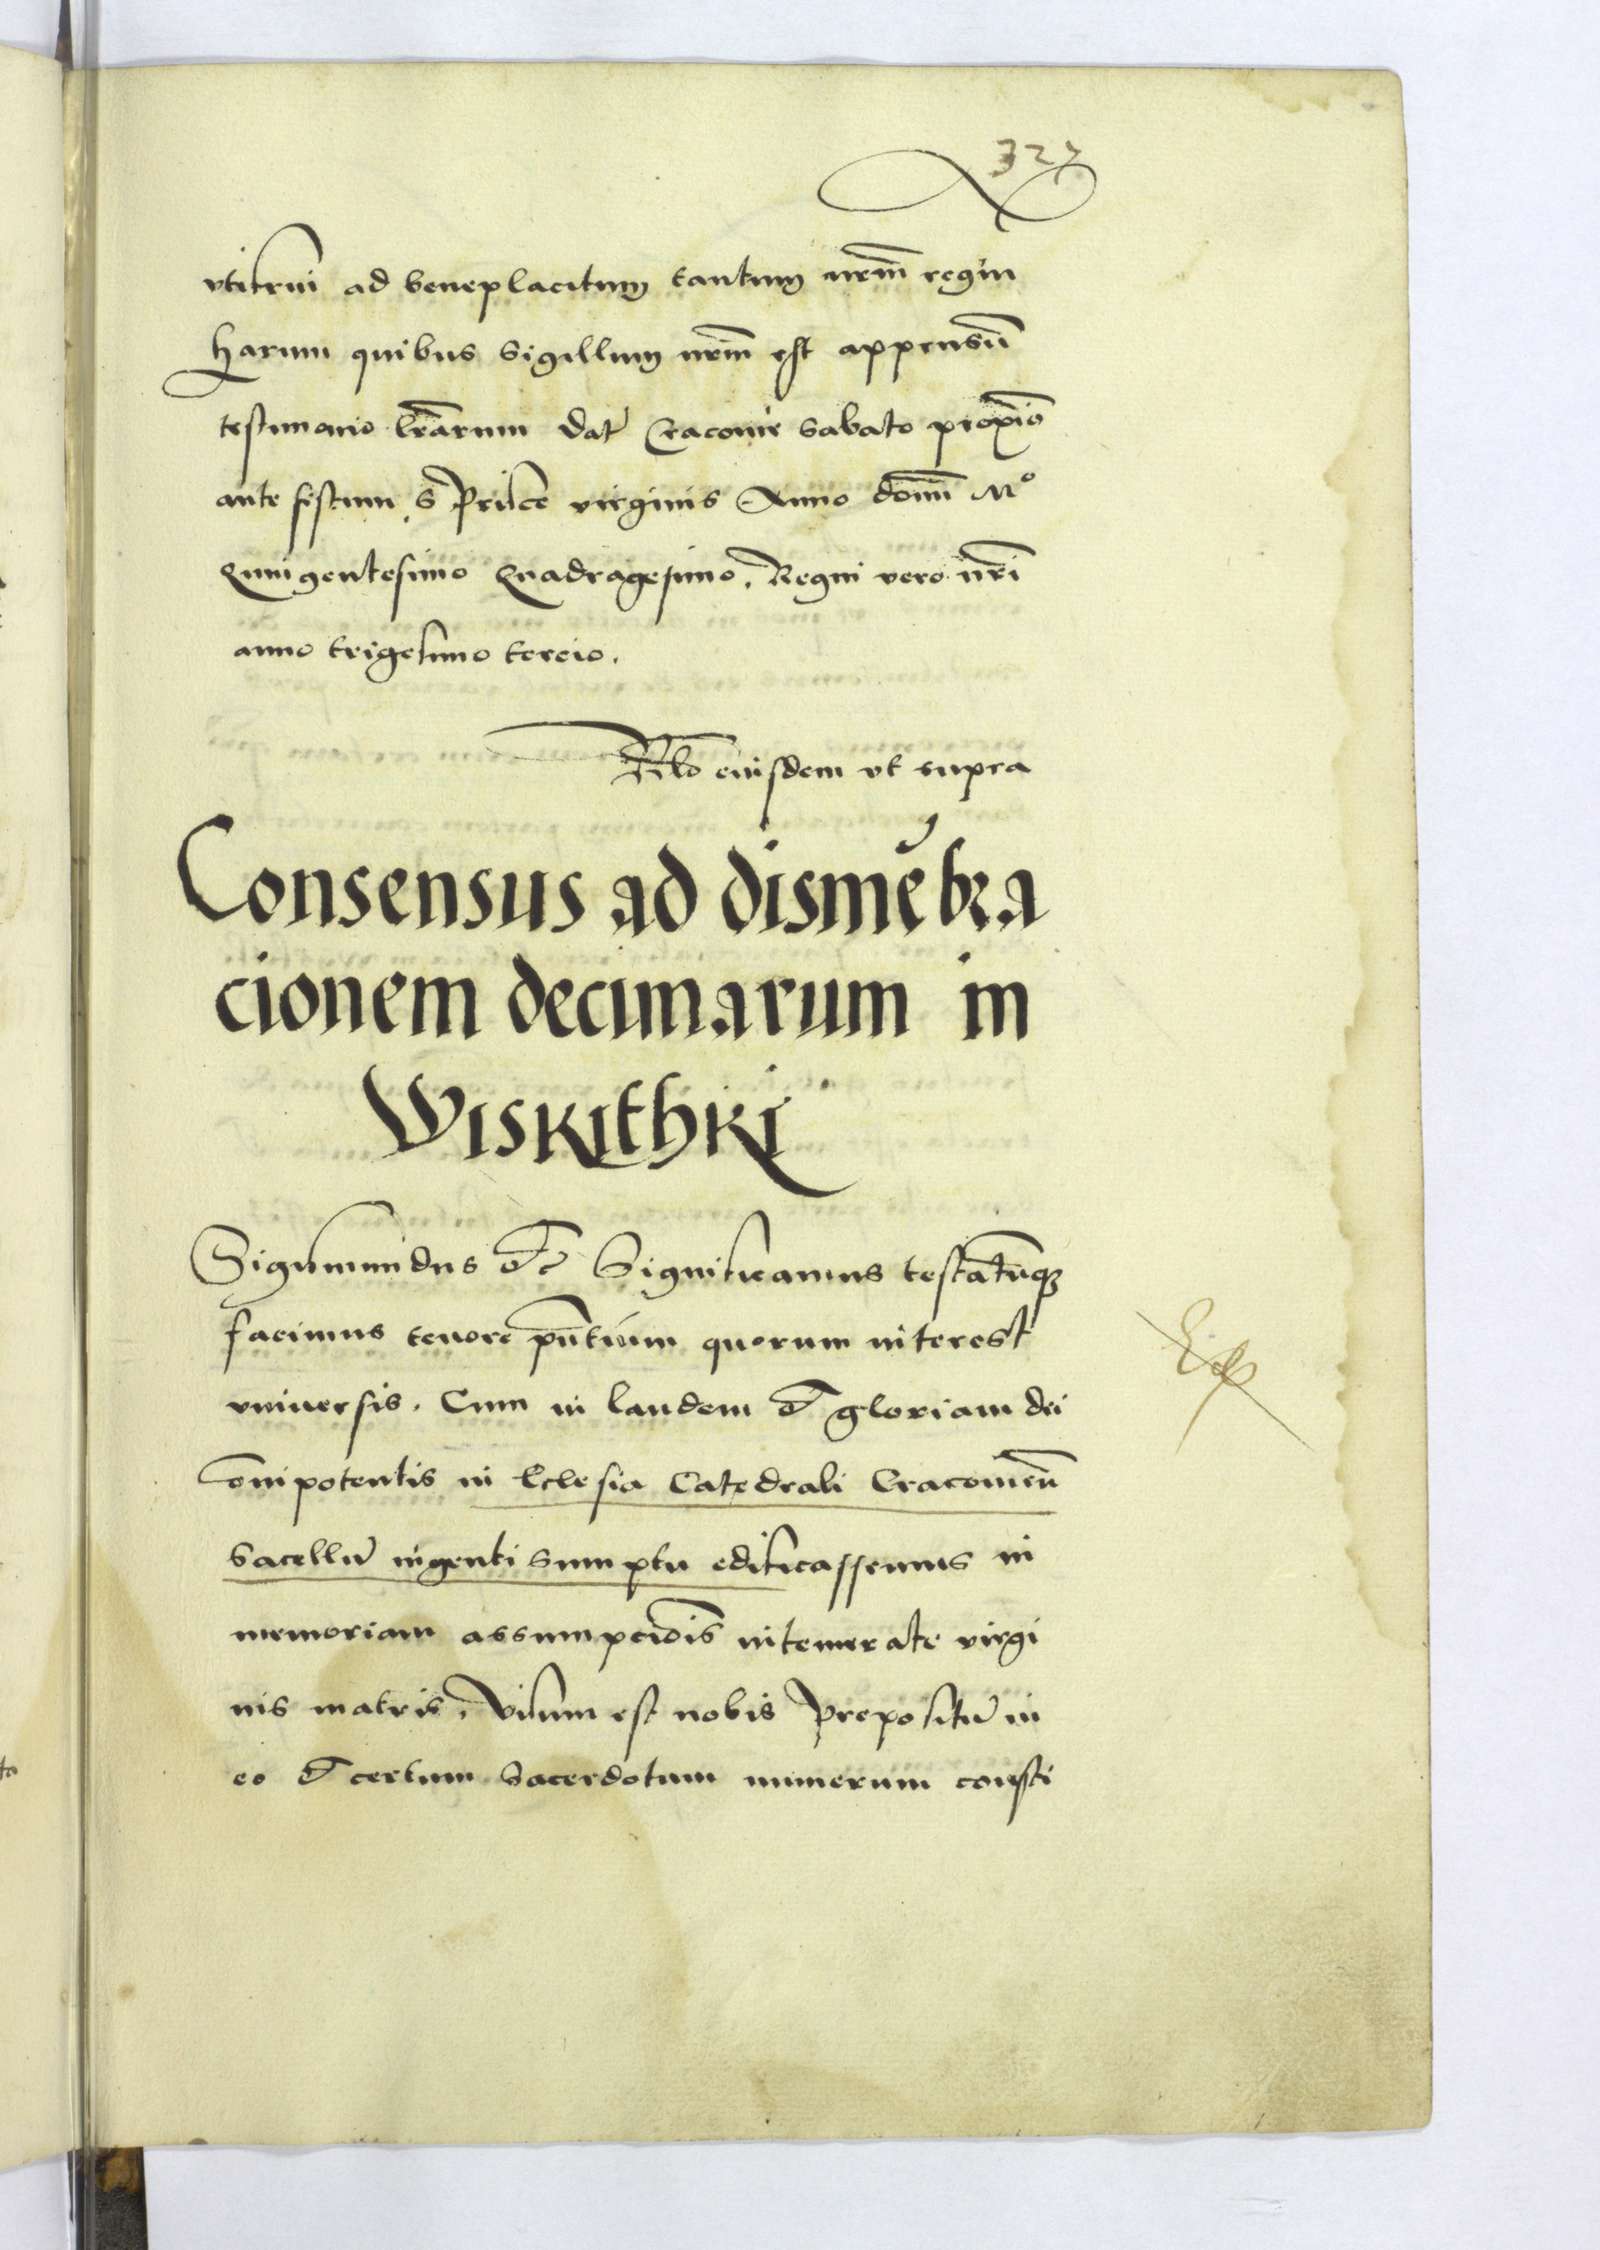 327
ad beneplacitum tantum nrm̄ regiu
harum quibus sigillum nrm̄ est appensū
testimonio lr̄arum Dat Cracovie sabato proxio
ante festum s Prisce virginis Anno domī Mo
Quingentesimo Quadragesimo. Regni vero nrī
anno trigesimo tercio.
Rlō eiusdem vt supra
Consensus ad dismēbra
cionem decimarum in
Wiskithki
Sigismundus &c Significamus testatūq3
facimus tenore pn̄tium quorum interest
vniuersis. Cum in laudem & gloriam dei
om̄ipotentis in Eclesia Catedrali Cracouien̄
Sacellū ingenti sumptu edificassemus in
memoriam assumpcīois intemerate virgi
nis matris, visum est nobis prepositū in
eo & certum sacerdotum numerum consti